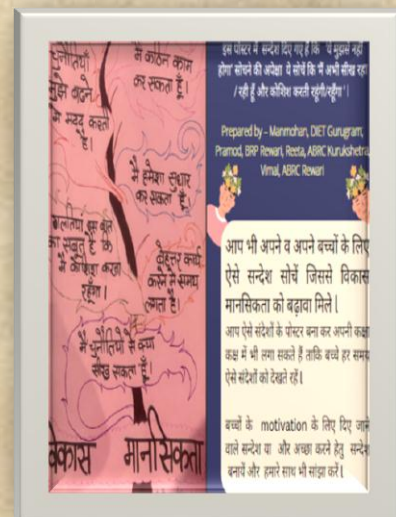 चुनौतियाँ
मुझे बढ़ने
में मदद करती
है।
मैं कठिन काम
कर सकता हूँ।
मैं हमेशा सुधार
कर सकता हूँ।
गलतियां इस बात
का सबूत है कि
मैं कोशिश करता
रहूँगा।
बेहतर कार्य
करने में समय
लगता है।
मैं चुनौतियों से
सीख सकता हूँ।
विकास मानसिकता
इस पोस्टर में सन्देश दिए गए है कि 'ये मुझसे नहीं
होगा' सोचने की अपेक्षा ये सोचें कि 'मैं अभी सीख रहा
/ रही हूँ और कोशिश करती रहूंगी/रहूँगा'।
Prepared by – Manmohan, DIET Gurugram,
Pramod, BRP Rewari, Reeta, ABRC Kurukshetra,
Vimal, ABRC Rewari
आप भी अपने व अपने बच्चों के लिए
ऐसे सन्देश सोचें जिससे विकास
मानसिकता को बढ़ावा मिले।
आप ऐसे संदेशों के पोस्टर बना कर अपनी कक्षा
कक्ष में भी लगा सकते हैं ताकि बच्चे हर समय
ऐसे संदेशों को देखते रहें।
बच्चों के motivation के लिए दिए जाने
वाले सन्देश या और अच्छा करने हेतु सन्देश
बनायें और हमारे साथ भी सांझा करें।